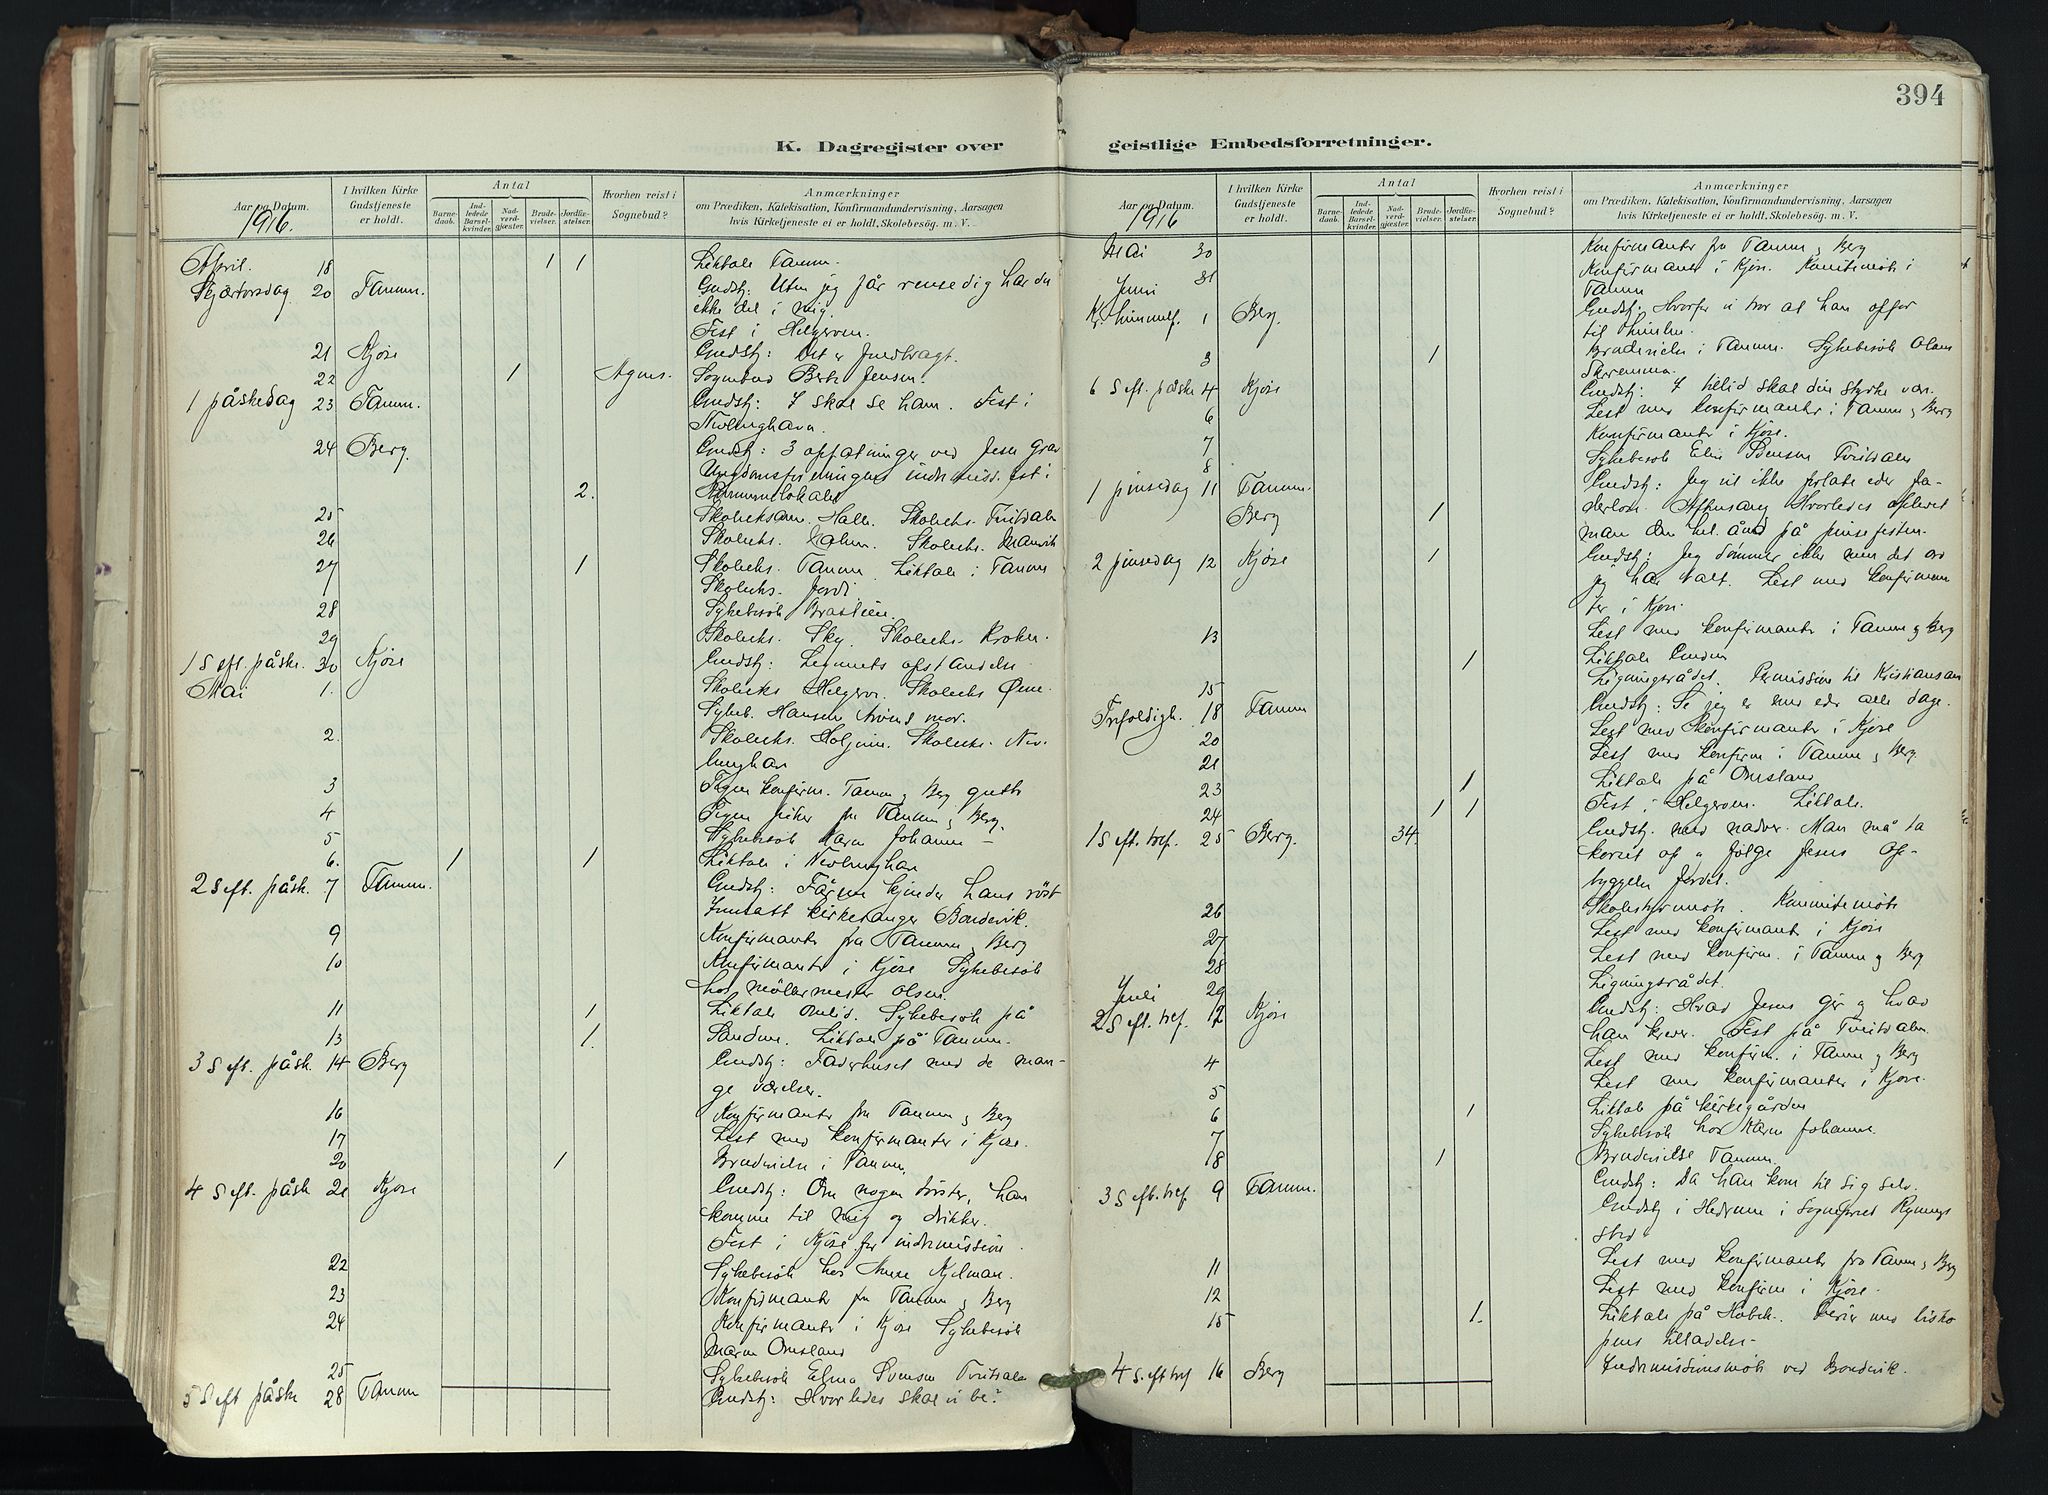 394
K. Dagregister over
geistlige Embedsforretninger.
Aar og Datum.
1916.
I hvilken Kirke
Gudstjeneste
er holdt.
Antal
Barne-
daab.
Ind-
ledede
Barsel-
kvinder.
Nad-
verd-
gjæster.
Brude-
vielser.
Jordfæ-
stelser.
Hvorhen reist i
Sognebud?
Anmærkninger
om Prædiken, Katekisation, Konfirmandundervisning, Aarsagen
hvis Kirketjeneste ei er holdt, Skolebesøg. m. V.
April. 18 1 1 Liktale Tanum.
Skjærtorsdag 20 Tanum. Gudstj: Uten jeg får rense dig har du
ikke del i mig.
Fest i Helgeroen.
21 Kjose Gudstj: Det er fuldbragt.
22 1 Agnes. Sognebud Jensen.
1 påskedag 23 Tanum. Gudstj: I skal se ham. Fest i
Nevlunghavn.
24 Berg. Gudstj: 3 opfatninger ved Jesu Grav
Ungdomsforeningens indremiss. fest i
2. Kommunelokalet
25 Skoleeksam. Halle. Skoleeks. Tveitdalen
26 Skoleeks. Skoleeks. Manvik
27 1 Skoleeks. Tanum Liktale i Tanum
Skoleeks. Jordi
28 Sykebesök
29 Skoleeks. Sky. Skoleeks.
1 S eft. påske. 30 Kjose Gudstj: Legemets opstandelse
Mai 1. Skoleeks Helgeroa. Skoleeks
Sykeb. Hansen mor.
2. Skoleeks. Skoleeks. Nev-
lunghav
3 konfirm. Tanum og Berg gutter
4 piker fra Tanum og Berg.
5 Sykebesök Karen Johanne
6. 1 1 Liktale i Nevlunghav
2 S eft. påsk. 7 Tanum. Gudstj: Fårene kjender hans röst
Innsatt kirkesanger Bondevik.
9 Konfirmanter fra Tanum og Berg
10 Konfirmanter i Kjose Sykebesök
hos möllermester Olsen.
11 1 Liktale Omlid. Sykebesök på
13 1. Sanden. Liktale på Tanum.
3 S eft. påsk. 14 Berg Gudstj: Faderhuset med de man-
ge værelser.
16 Konfirmanter fra Tanum og Berg
17 Lest med konfirmanter i Kjose.
20 1 Brudevielse i Tanum.
4 S eft. påsk 21 Kjose Gudstj: Om nogen törster, han
komme til mig og drikke.
Fest i Kjose for indremissionen.
22 Sykebesök hos
23 Konfirmanter fra Tanum og Berg
24 Konfirmanter i Kjose Sykebesök
Maren Omsland
25 Sykebesök Elma Svensen Tveitdalen
5 S eft påske 28 Tanum Gudstj: Hvorledes skal vi be?
Aar og Datum.
1916
I hvilken Kirke
Gudstjeneste
er holdt.
Antal
Barne-
daab.
Ind-
ledede
Barsel-
kvinder.
Nad-
verd-
gjæster.
Brude-
vielser.
Jordfæ-
stelser.
Hvorhen reist i
Sognebud?
Anmærkninger
om Prædiken, Katekisation, Konfirmandundervisning, Aarsagen
hvis Kirketjeneste ei er holdt, Skolebesög. m. V.
Mai 30 Konfirmanter fra Tanum og Berg
31 Konfirmanter i Kjose. Komitemöte i
Tanum
Juni
Kr. himmelf. 1 Berg. Gudstj: Hvorfor vi tror at han opfor
til himlen.
3 1 Brudevielse i Tanum. Sykebesök Olava
6 S eft. påske 4 Kjose Gudstj: I tillid skal din styrke være.
6 Lest med konfirmanter i Tanum og Berg
7 Konfirmanter i Kjose.
8 Sykebesök Svensen Tveitdalen
1 pinsedag 11 Tanum. Gudstj: Jeg vil ikke forlate eder fa-
derlöse. Aftensang Hvorledes oplevet
Berg 1 man den hel. ånd på pinsefesten.
2 pinsedag 12 Kjose 1 Gudstj: Jeg dömmer ikke men det ord
jeg har talt. Lest med konfirman-
ter i Kjose.
13 Lest med konfirmanter i Tanum og Berg
1 Liktale
15 Ligningsrådet. Permission til Kristiansan
Trefoldigh. 18 Tanum Gudstj: Se jeg er med eder alle dage.
20 Lest med konfirmanter i Kjose
21 Lest med konfirm i Tanum og Berg.
23 1 Liktale på Omsland
24 1 1 Fest i Helgeroen. Liktale.
1 S eft. tref. 25 Berg. 34. Gudstj. med nadver. Man må ta
korset op og fölge Jesus Op-
byggelse Jordet.
26 Skolestyremöte. Komitemöte
27 Lest med konfirmanter i Kjose
28 Lest med konfirm. i Tanum og Berg
29 Ligningsrådet.
Juli
2 S eft. tref. 2 Kjose Gudstj: Hvad Jesus gir og hvad
han krever. Fest på Tveitdalen.
4 Lest med konfirm. i Tanum og Berg
5 Lest med konfirmanter i Kjose.
6 1 Liktale på kirkegården
7 Sykebesök hos Karen Johanne.
8 1 Brudevielse Tanum.
3 S eft. tref 9 Tanum. Gudstj: Da han kom til sig selv.
Gudstj i Hedrum i Sogneprest Rynnings
sted
11 Lest med konfirmanter fra Tanum og Berg
12 Lest med konfirm i Kjose.
15 1. Liktale på Ferier med bisko
pens tilladelse.
4 S. eft tref 16 Berg Indremissionsmöte ved Bondevik.